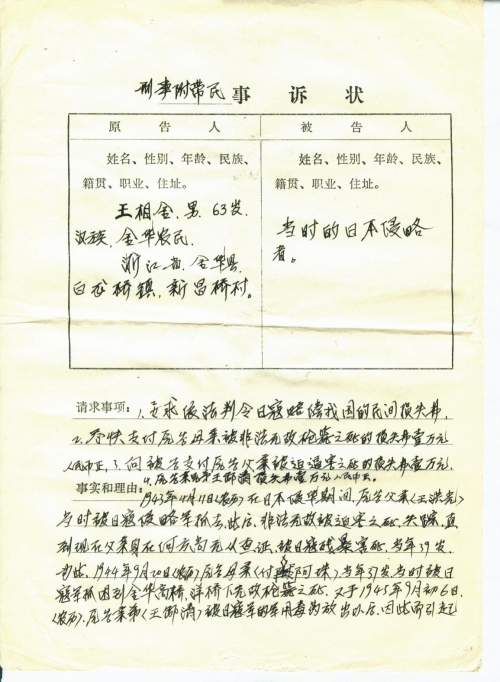 刑事附带民事诉状
原告人 被告人
姓名、性别、年龄、民族、 姓名、性别、年龄、民族、
籍贯、职业、住址。 籍贯、职业、住址。
王相金,男,63岁,
汉族,金华农民, 当时的日本侵略
浙江省,金华县, 者。
白龙桥镇,新昌桥村。
请求事项:1,要求依法判令日寇赔偿我国的民间损失费,
2,尽快支付原告母亲被非法无故枪杀之死的损失费壹万元
人民币正,3,向被告支付原告父亲被迫害之死的损失费壹万元,
4,原告弟弟王邵清损失费壹万元人民币正。
事实和理由:1943年4月11日(农历)在日本侵华期间,原告父亲(王洪)
当时被日寇侵略军抓去,此后,非法无故被迫害之死,失踪,直
到现在父亲身在何方尚无从查证,被日寇残暴害死,当年39岁,
为此,1944年9月20日(农历)原告母亲(付阿珠)当年37岁,当时被日
寇军抓回到金华高桥,洋桥下无故枪杀之死,又于1945年9月初6日,
(农历),原告弟弟(王邵清)被日寇军的军用毒药放出以后,因此而引起